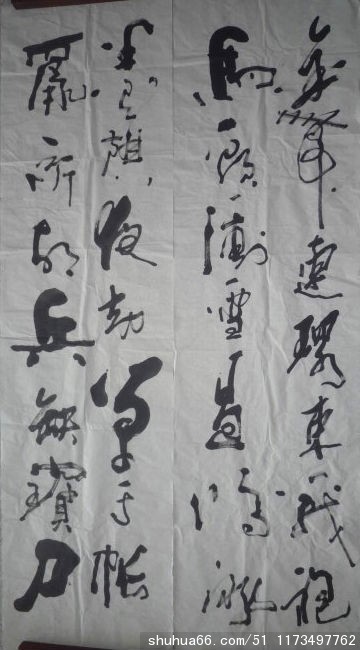 金帶連環束戰袍
馬頭衝雪過臨洮
卷旗夜劫單于帳
亂斫胡兵缺寶刀
shuhua66.com/51 1173497762